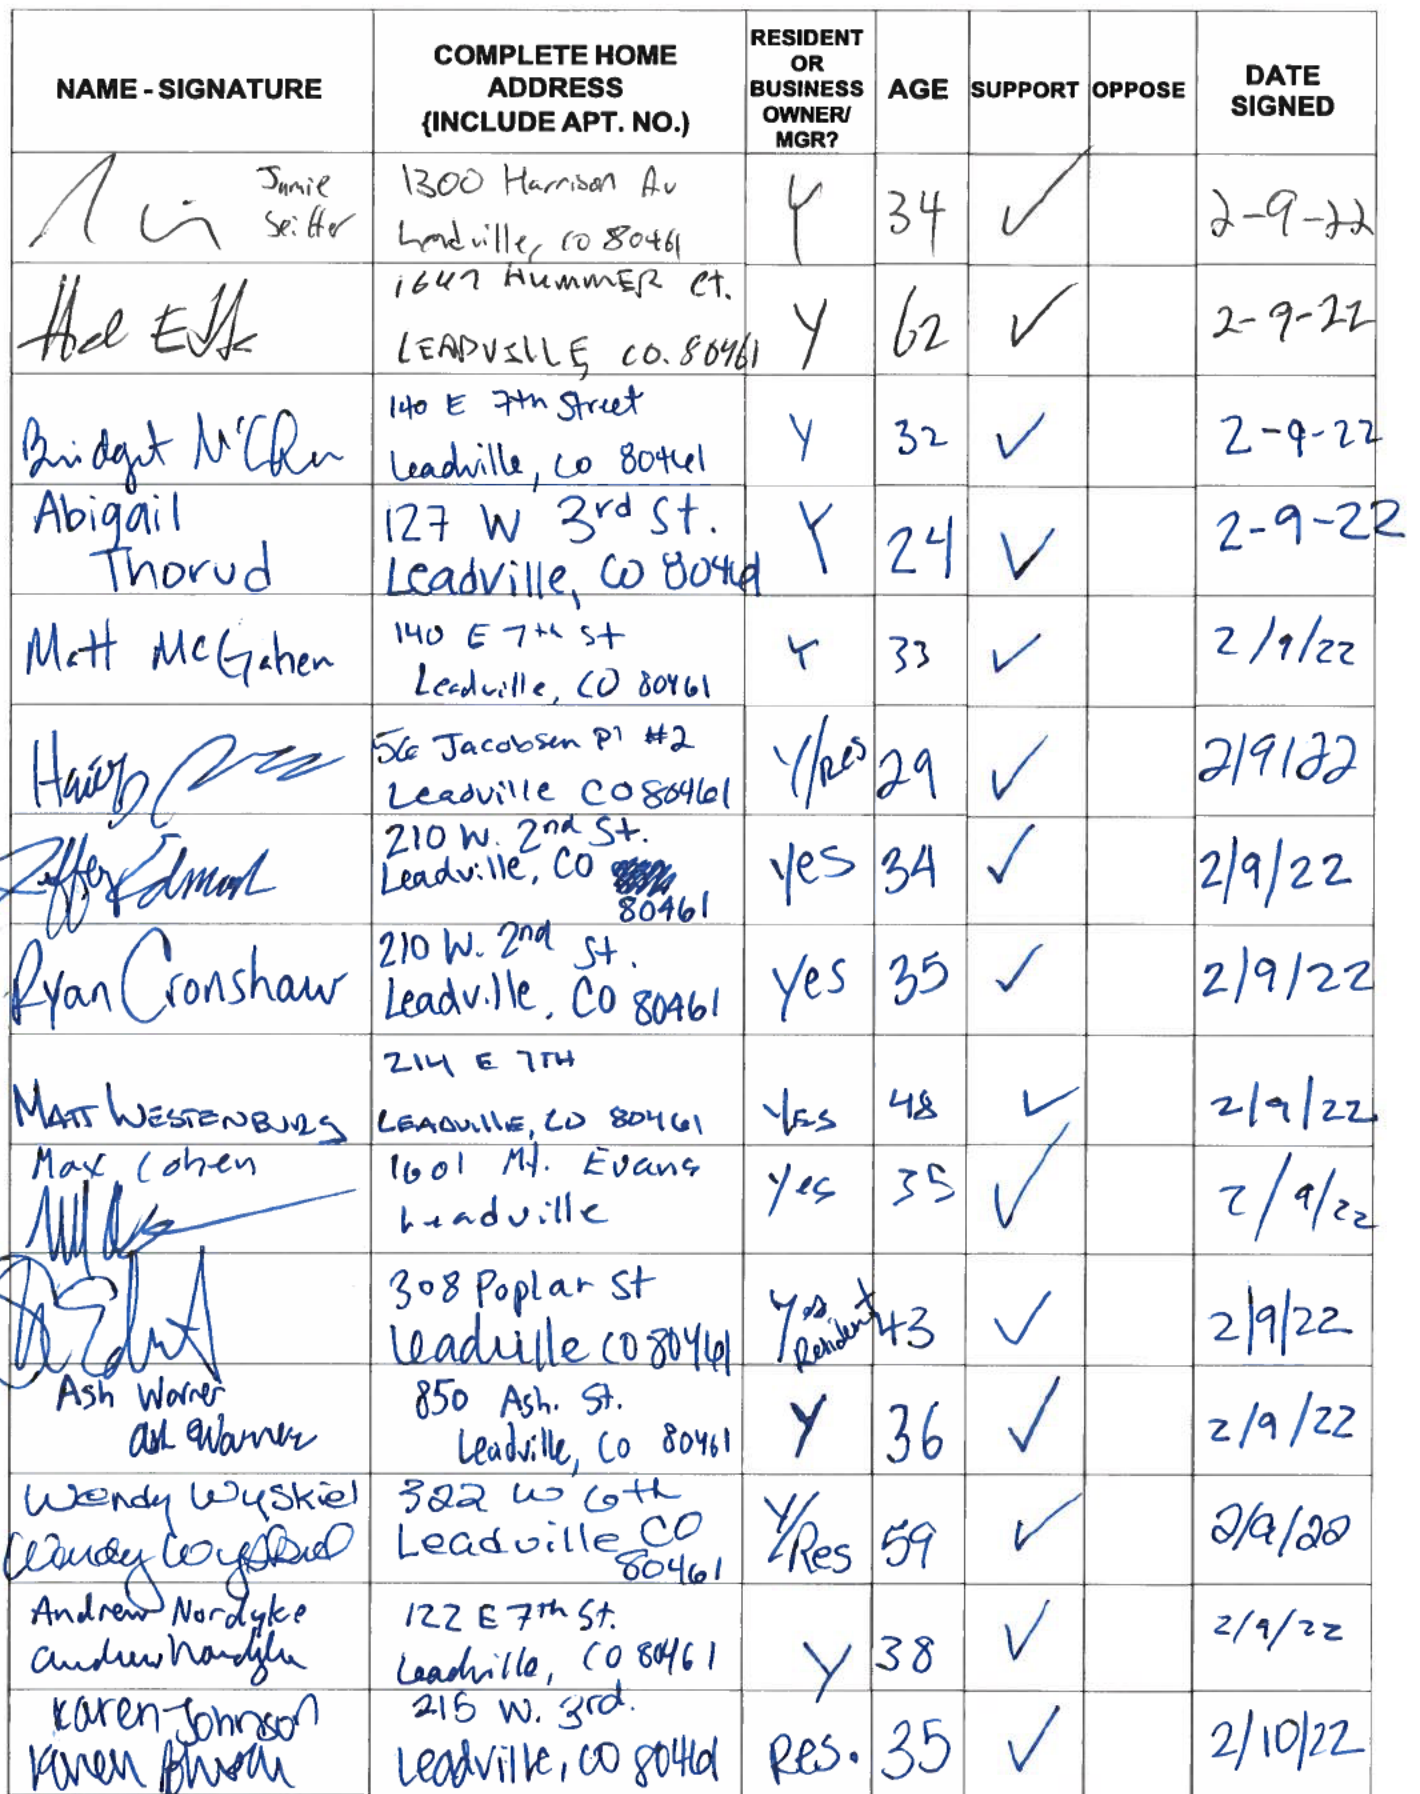 NAME - SIGNATURE
COMPLETE HOME
ADDRESS
(INCLUDE APT. NO.)
RESIDENT
OR
BUSINESS
OWNER/
MGR?
AGE
SUPPORT
OPPOSE
DATE
SIGNED
Jamie
Seitter
1300 Harrison Av
Leadville, CO 80461
Y
34
✓
2-9-22
1647 HUMMER Ct.
LEADVILLE, CO. 80461
Y
62
✓
2-9-22
Bridget
140 E 7th Street
Leadville, CO 80461
Y
32
✓
2-9-22
Abigail
Thorud
127 W 3rd St.
Leadville, CO 80461
Y
24
✓
2-9-22
Matt McGahen
140 E 7th St
Leadville, CO 80461
Y
33
✓
2/9/22
56 Jacobsen Pl #2
Leadville CO 80461
Y/Res
29
✓
2/9/22
210 W. 2nd St.
Leadville, CO
80461
yes
34
✓
2/9/22
Ryan Cronshaw
210 W. 2nd St.
Leadville, CO 80461
yes
35
✓
2/9/22
MATT WESTENBURG
214 E 7TH
LEADVILLE, CO 80461
YES
48
✓
2/9/22
Max Cohen
1601 Mt. Evans
Leadville
Yes
35
✓
2/9/22
308 Poplar St
Leadville CO 80461
Yes
Resident
43
✓
2/9/22
Ash Warner
Ash Warner
850 Ash. St.
Leadville, CO 80461
Y
36
✓
2/9/22
Wendy Wyskiel
Wendy Wyskiel
322 W 6th
Leadville CO
80461
Y/Res
59
✓
2/9/22
Andrew Nordyke
Andrew Nordyke
122 E 7th St.
Leadville, CO 80461
Y
38
✓
2/9/22
Karen Johnson
Karen Johnson
215 W. 3rd.
Leadville, CO 80461
Res.
35
✓
2/10/22